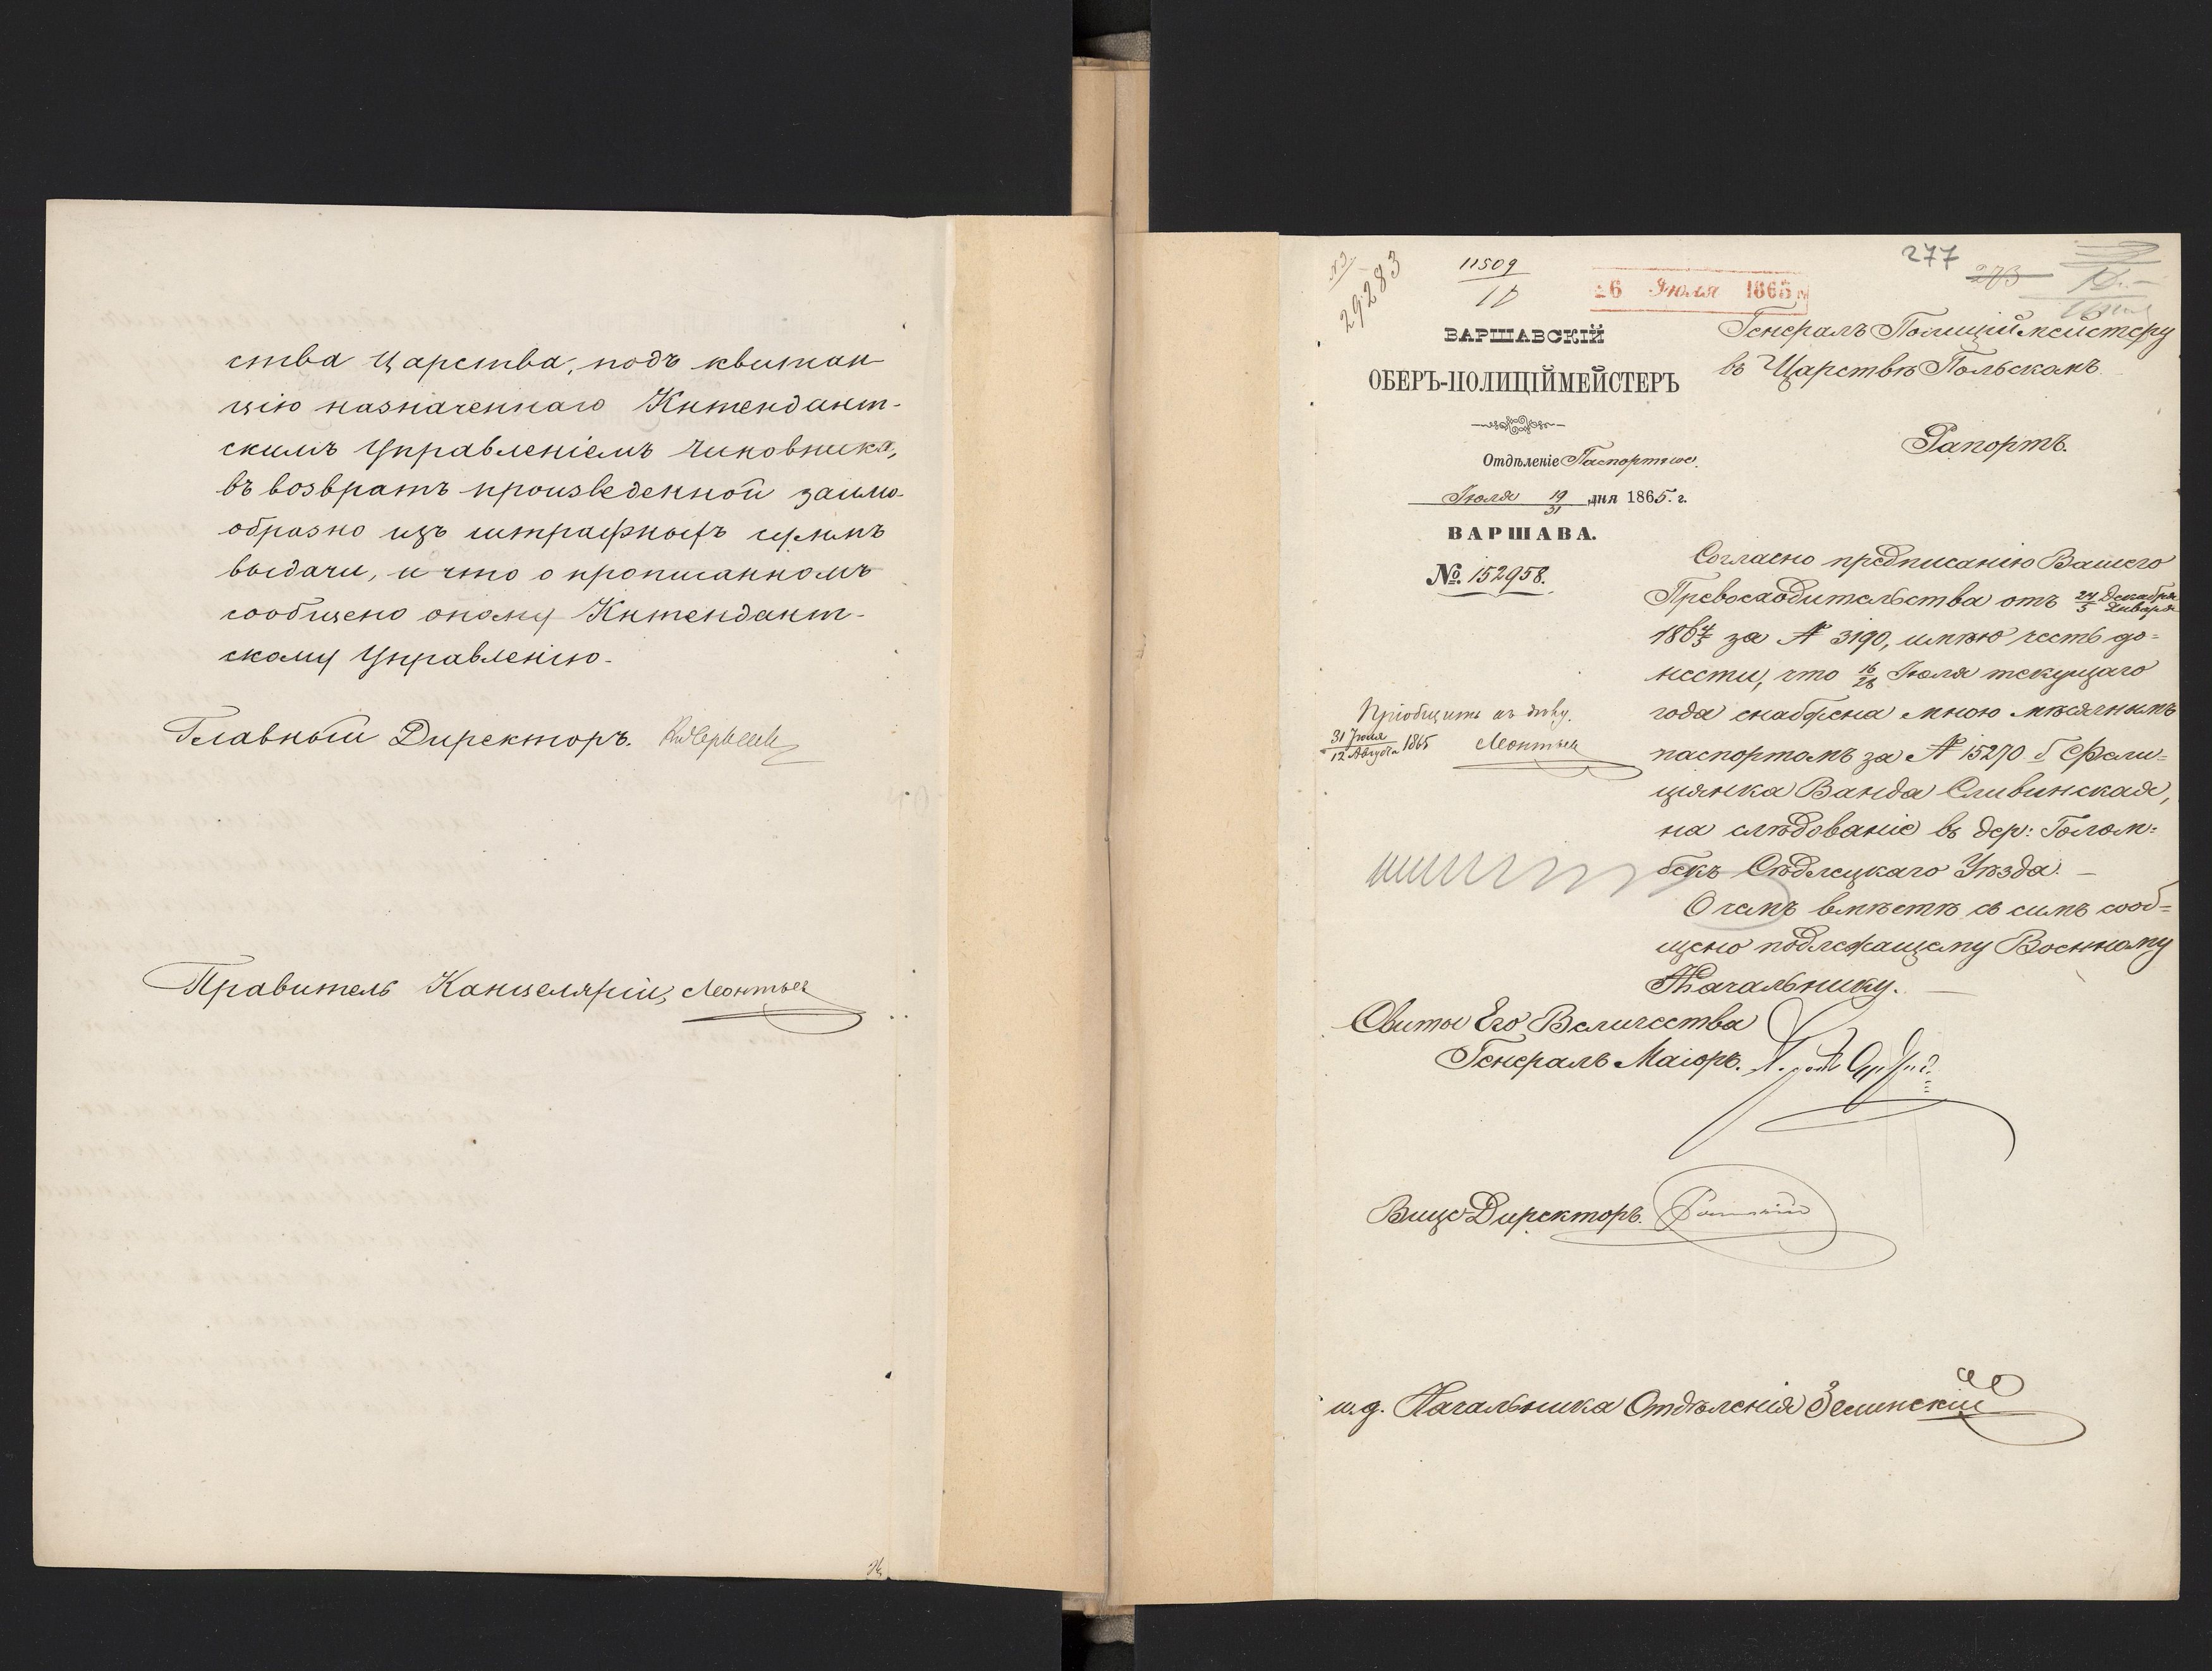 ства Царства, подъ квитан
цію назначеннаго Интендант-
скимъ Управленіемъ чиновника,
въ возвратъ произведенной заимо-
образно изъ штрафныхъ суммъ
выдачи, и что о прописанномъ
сообщено оному Интендант-
скому Управленію.
Главный Директоръ.
Правитель Канцеляріи, Леонтьев
29283
11509
26 Іюля 1865
277
273
ВАРШАВСКІЙ
ОБЕРЪ-ПОЛИЦІЙМЕЙСТЕРЪ
Отдѣленіе Паспортное.
Іюля 19/31 дня 1865. г.
ВАРШАВА.
№ 152958.
Генералъ Полиціймейстеру
въ Царствѣ Польскомъ.
Рапортъ.
Согласно предписанію Вашего
Превосходительства отъ 24 Декабря/5 Января
1864/5 за № 3190, имѣю честь до=
нести, что 16/28 Іюля текущаго
года снабжена мною мѣсячнымъ
паспортомъ за № 15270 б. Фели=
ціянка Ванда Сливинская,
на слѣдованіе въ дер: Голом=
бекъ Сѣдлецкаго Уѣзда. —
О чемъ вмѣстѣ съ симъ сооб=
щено подлежащему Военному
Начальнику. —
Пріобщить къ дѣлу.
31 Іюля/12 Августа 1865 Леонтьев
Свиты Его Величества
Генералъ Маіоръ.
Вице Директоръ.
и. д. Начальника Отдѣленія Зелинскій